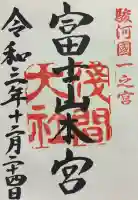 駿河國一之宮
富士山本宮
淺間大社
令和二年十二月二十四日